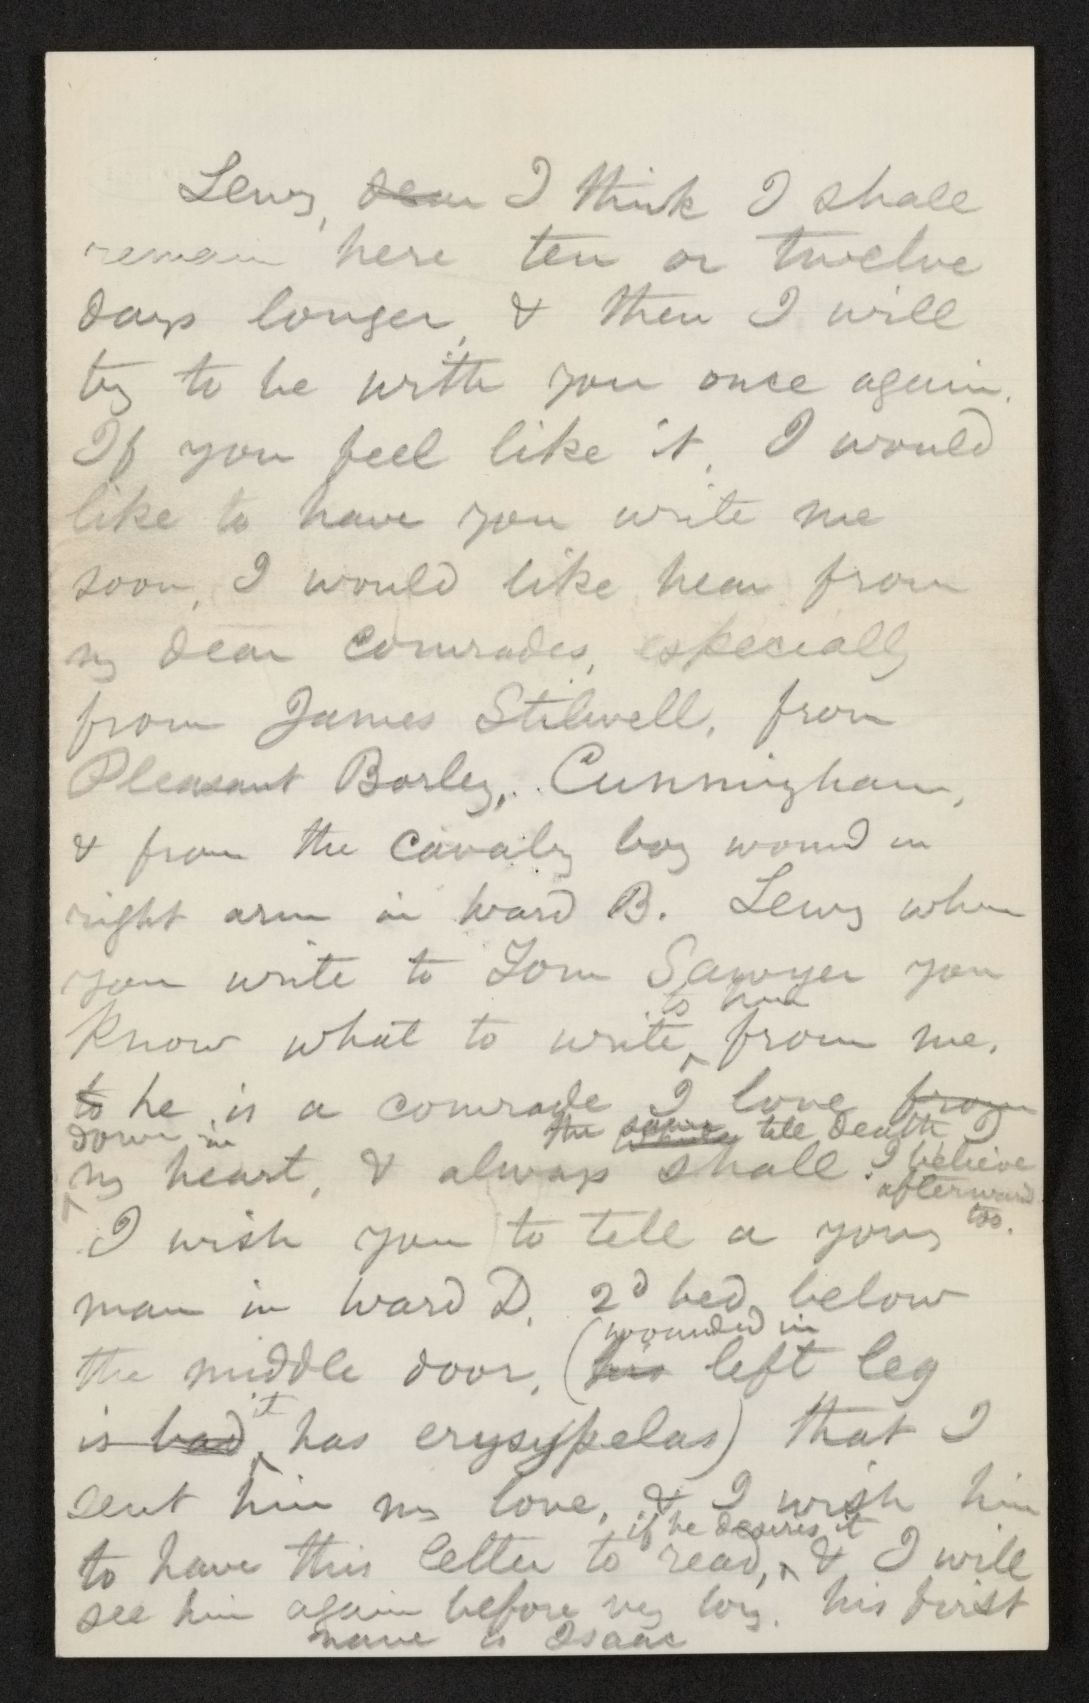 Lewy, dear I think I shall
remain here ten or twelve
days longer, & then I will
try to be with you once again.
If you feel like it, I would
like to have you write me
soon, I would like hear from
my dear comrades, especially
from James Stilwell, from
Pleasant Borley, Cunningham,
& from the cavalry boy wound in
right arm in ward B. Lewy when
you write to Tom Sawyer you
to him
know what to write from me.
to he is a comrade I love from
down in the same till death I
my heart, & always shall. I believe
afterward
too.
I wish you to tell a young
man in ward D, 2d bed below
wounded in
the middle door, (his left leg
it
is bad, has erysypelas) that I
sent him my love, & I wish him
if he desires it
to have this letter to read, & I will
see him again before very long. his first
name is Isaac